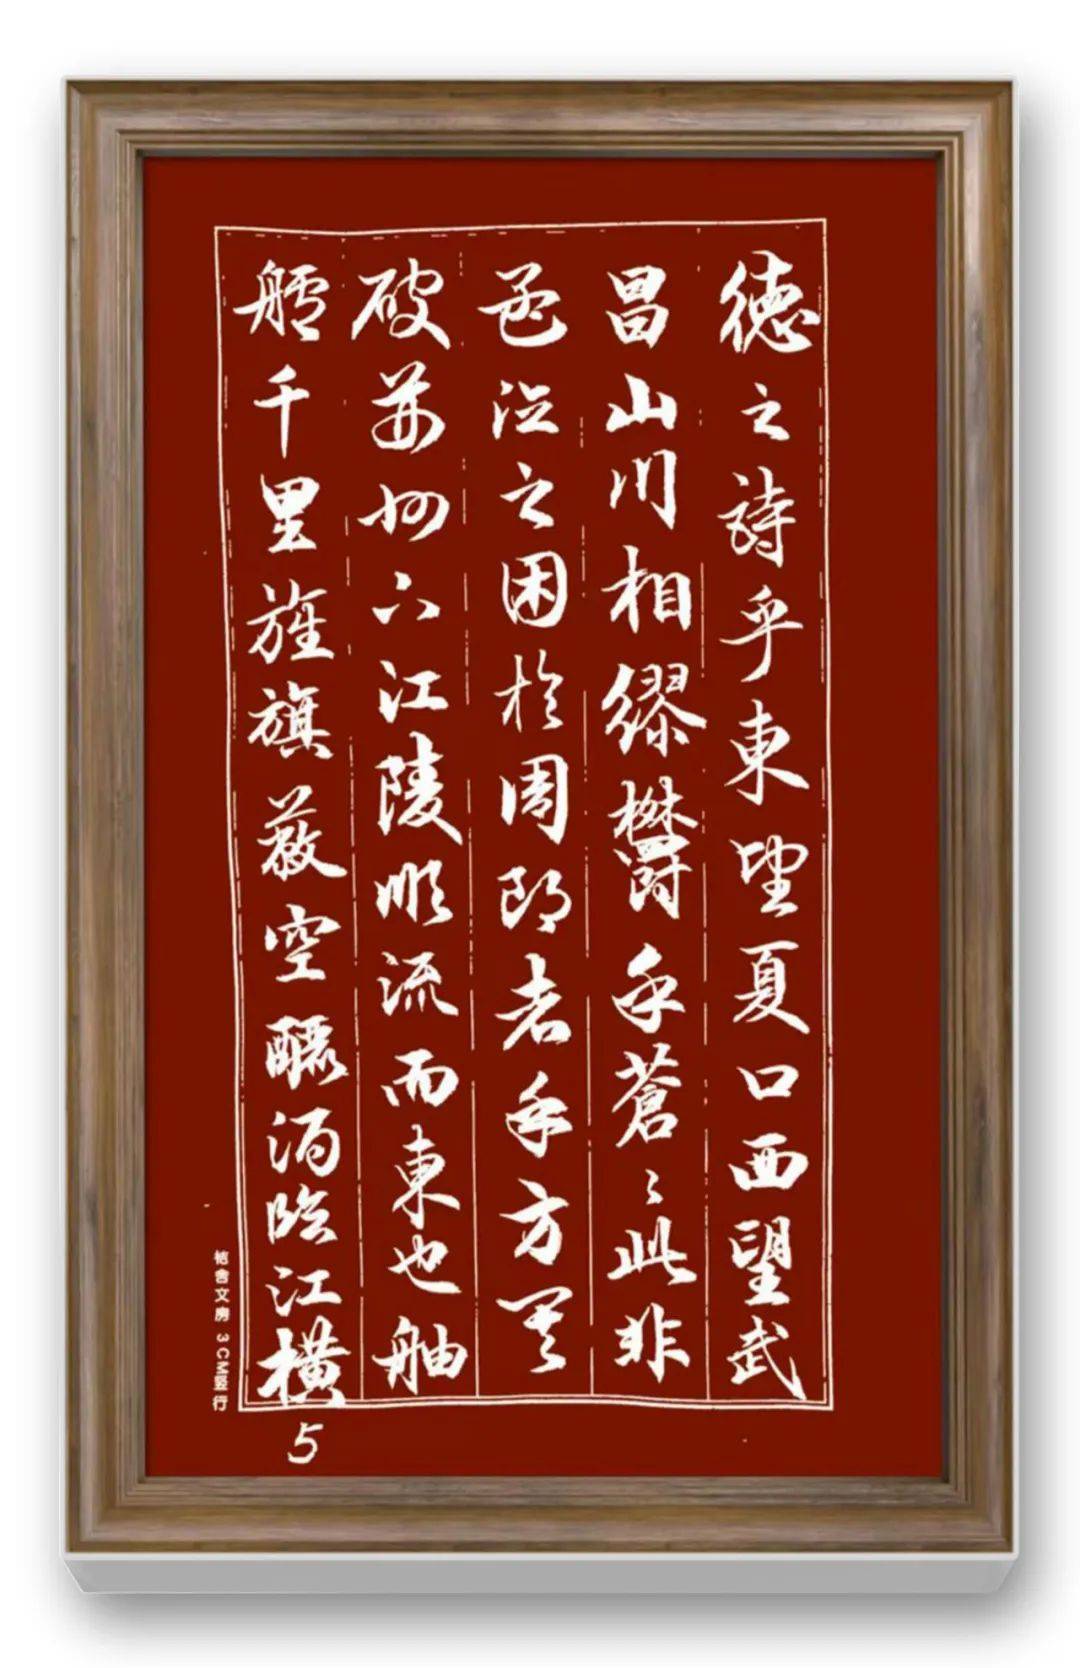 德之詩乎東望夏口西望武
昌山川相繆欝乎蒼〻此非
孟德之困於周郎者乎方其
破荊州下江陵順流而東也舳
艫千里旌旗蔽空釃酒臨江横
5
舍文房 3CM竖行